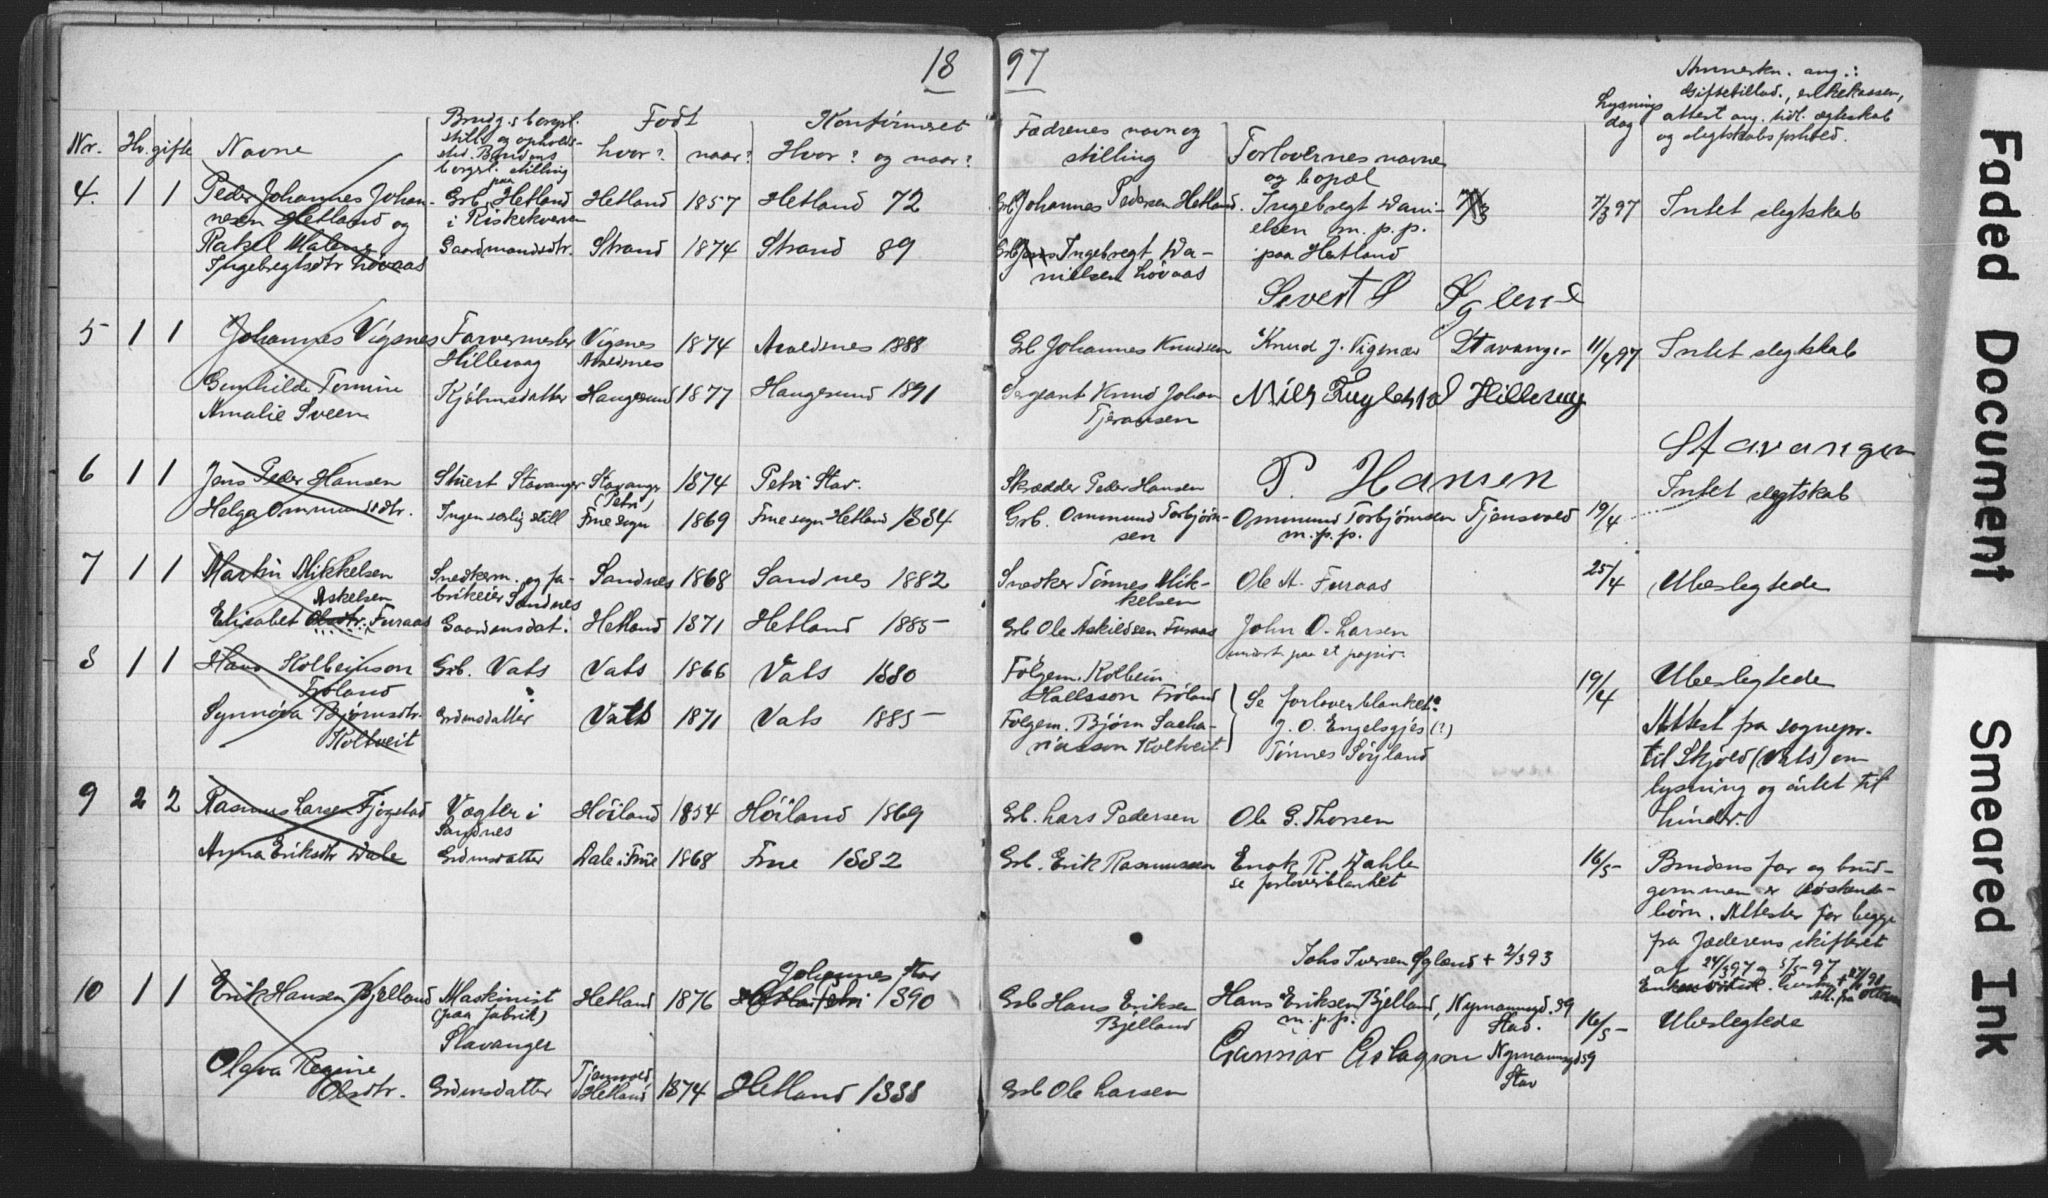 18 97
Nr. Hv. gifte Navne
Brudg.s borgl.
still. og opholds-
sted. Brudens
borgl. stilling
Født
hvor? naar?
Konfirmeret
Hvor? og naar?
Fædrenes navn og
stilling
Forlovernes navne
og bopæl
Lysnings
dag
Anmerkn. ang.:
Giftetillad., enkekassen,
attest ang. tidl. ægteskab
og slegtskabsforhold.
4. 1 1 Peder Johannes Johan-
nesen Hetland og
Rakel Malene
Ingebregtsdtr Løvaas
Grb. paa Hetland
i Riskekvern
Gaardmandsdtr.
Hetland 1857 Hetland 72
Strand 1874 Strand 89
Grb Johannes Pedersen Hetland.
Grb Jens Ingebregt Da-
nielsen Løvaas
Ingebregt Dani-
elsen m.p.p.
paa Hetland
Sivert S Øglend
7/3
7/3 97 Intet slegtskab
5 1 1 Johannes Vigsnes
Gunhilde Tomine
Amalie Sveen
Farvermester
Hillevaag
Kjøbmsdatter
Vigsnes
Avaldsnes
1874 Avaldsnes 1888
Haugesund 1877 Haugesund 1891
Grb Johannes Knudsen
Sergeant Knud Johan
Tjeransen
Knud J. Vigsnæs Stavanger
Nils Fuglestad Hillevag
11/4 97 Intet slegtskab
6 1 1 Jens Peder Hansen
Helga Ommundsdtr.
Stuert Stavanger
Ingen særlig still
Stavanger
(Petri)
1874 Petri Stav.
Frue sogn 1869 Frue sogn Hetland 1884
Skrædder Peder Hansen
Grb. Ommund Torbjørn-
sen
P. Hansen
Stavanger
Ommund Torbjørnsen Tjensvold
m.p.p.
19/4 Intet slegtskab
7 1 1 Martin Mikkelsen
Askelsen
Elisabet Olsdtr. Furaas
Snedkerm. og fa-
brikeier Sandnes
Gaardmsdat.
Sandnes 1868 Sandnes 1882
Hetland 1871 Hetland 1885
Snedker Tønnes Mik-
kelsen
Grb Ole Askildsen Furaas
Ole A. Furaas
John O. Larsen
paa et papir.
25/4 Ubeslegtede
8 1 1 Hans Kolbeinson
Frøland
Synnøva Bjørnsdtr.
Koltveit
Grb. Vats
Grdmsdatter
Vats 1866 Vats 1880
Vats 1871 Vats 1885
Følgem. Kolbein
Hallsson Frøland
Følgem. Bjørn Sacha-
riasson Koltveit
Se forloverblanket:
J. O. Engelsgjes (?)
Tønnes Søyland
19/4 Ubeslegtede
Attest fra sognepr.
til Skjold (Vats) om
lysning og intet til
hindr.
9 2 2 Rasmus Larsen Fjogstad
Anna Eriksdtr Dale
Vægter i
Sandnes
Grdmsdatter
Høiland 1854 Høiland 1869
Dale i Frue 1868 Frue 1882
Grb. Lars Pedersen
Grb. Erik Rasmussen
Ole G. Thorsen
Enok R. Dahle
se forloverblanket
16/5 Brudens far og brud-
gommen er søskende-
børn. Attester for begge
fra Jæderens skifteret
af 24/3 97 og 5/5-97
10 1 1 Erik Hansen Bjelland
Olava Regine
Olsdtr.
Maskinist
(paa fabrik)
Stavanger
Grdmsdatter
Hetland 1876
Johannes Stav
1890
Tjensvold,
Hetland 1874 Hetland 1888
Grb Hans Eriksen
Bjelland
Grb Ole Larsen
Johs Iversen Øgland + 2/3 93
Hans Eriksen Bjelland, Nymannsgd. 39
m.p.p. Stav.
Gunnar Aslagson Nymannsgd 59
Stav
16/5 Ubeslegtede
Faded Document
Smeared Ink